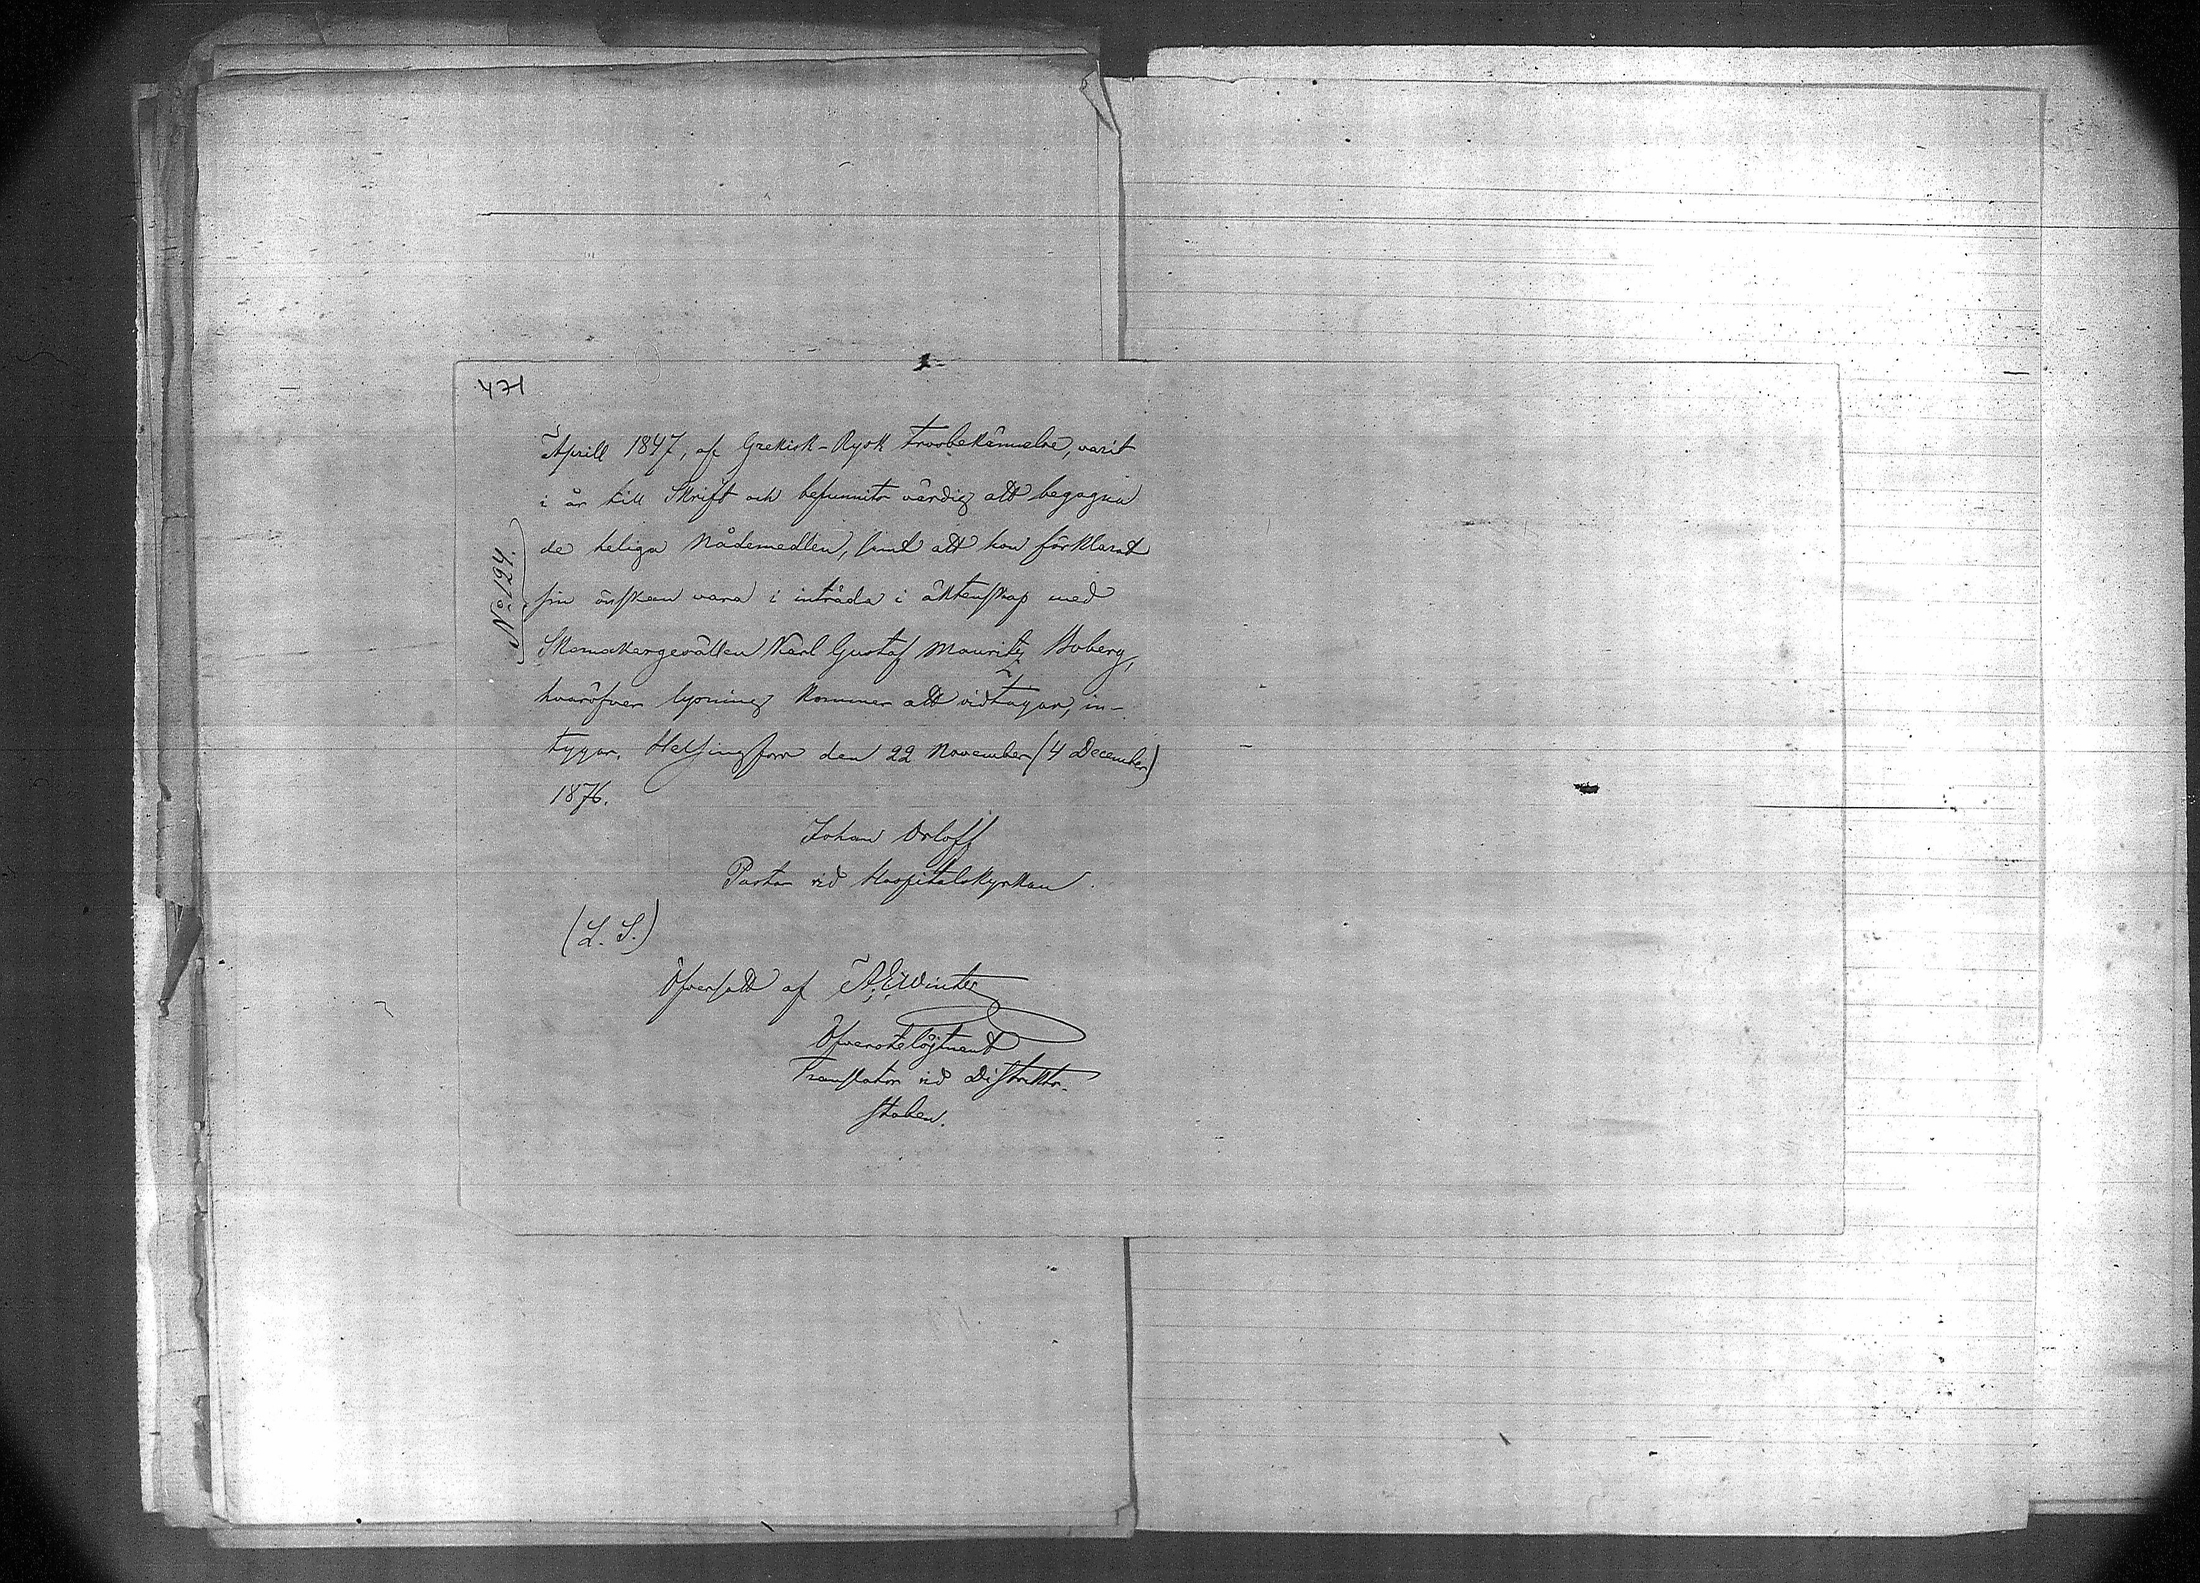 471
No 124.
April 1847, af Grekisk-Rysk trosbekännelse, varit
i år till Skrift och befunnits värdig att begagna
de heliga Nådemedlen, samt att hon förklarat
sin önskan vara i inträda i äktenskap med
Skomakargesällen Karl Gustaf Mauritz Boberg,
hvaröfver lysning kommer att vidtagas, in-
tygar. Helsingfors den 22 November (4 December)
1876.
Johan Orloff
Pastor vid Hospitalskyrkan.
(L. S.)
Öfversatt af A. E. Winter
Öfverstelöjtnant
Translator vid Distrikts-
staben.